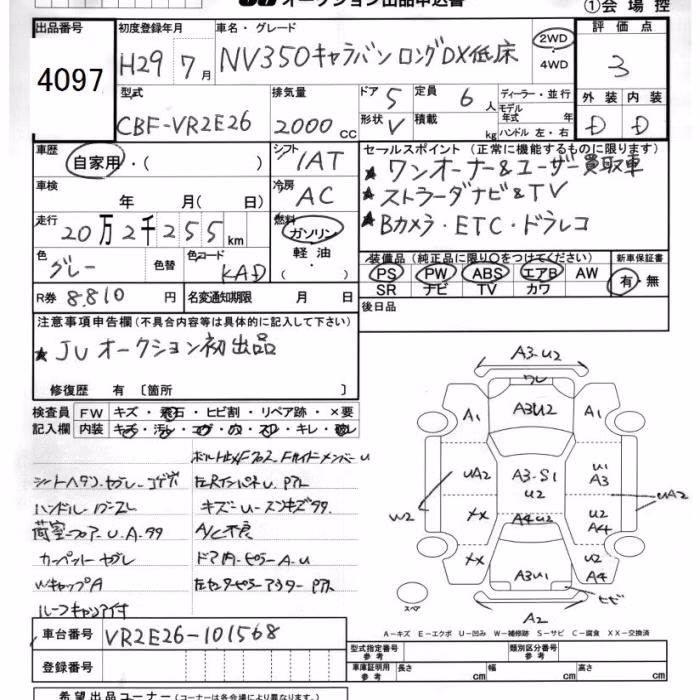 オークション出品申込書
①会場控
出品番号
4097
初度登録年月
H29年7月
車名・グレード
NV350キャラバン ロングDX低床
2WD
4WD
評価点
3
外装 内装
D D
型式
CBF-VR2E26
排気量
2000 cc
ドア 5
定員 6人
形状 V
積載 kg
ディーラー・並行
モデル年式 年
ハンドル 左・右
車歴
自家用・( )
シフト
IAT
車検
年 月( 日)
冷房
AC
走行
20万2千255km
燃料
ガソリン
軽油
色
グレー
色替
色コード
KAD
R券 8.810 円
名変通知期限 月 日
セールスポイント(正常に機能するものに限ります)
★ワンオーナー&ユーザー買取車
★ストラーダナビ&TV
★Bカメラ・ETC・ドラレコ
装備品(純正品に限り○をつけてください)
PS PW ABS エアB AW
SR ナビ TV カワ
新車保証書
有・無
後日品
注意事項申告欄(不具合内容等は具体的に記入して下さい)
★JUオークション初出品
修復歴 有〔箇所 〕
検査員記入欄
FW キズ・飛石・ヒビ割・リペア跡・×要
内装 キズ・汚レ・コゲ・穴・スレ・キレ・破レ
シートヘタリ.ヤブレ.コゲ穴
荷室フロアU.A.ササ
カーペットヤブレ
WキャップA
ルーフキャリア付
キズミーU
A/C不良
ドア内ピラーA.U
A3・U2
ワレ
A1
A3U2
A1
UA2
A3・S1
U2
U1
A3
W2
UA2
XX
A4U2
U2
A4
XX
A3U1
U2
A4
スペア
ヒビ
A2
A-キズ E-エクボ U-凹み W-補修跡 S-サビ C-腐食 XX-交換済
車台番号
VR2E26-101568
登録番号
型式指定番号 参考
類別区分番号 参考
車庫証明用 参考
長さ cm
幅 cm
高さ cm
希望出品コーナー(コーナーは各会場により異なります。)